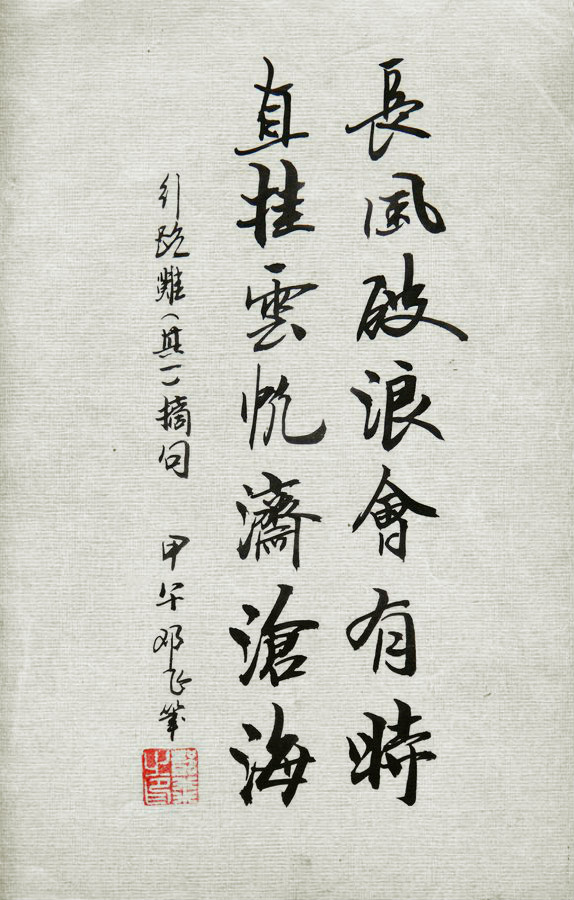 長風破浪會有時
直挂雲帆濟滄海
行路難（其一）摘句 甲午 鄧 筆